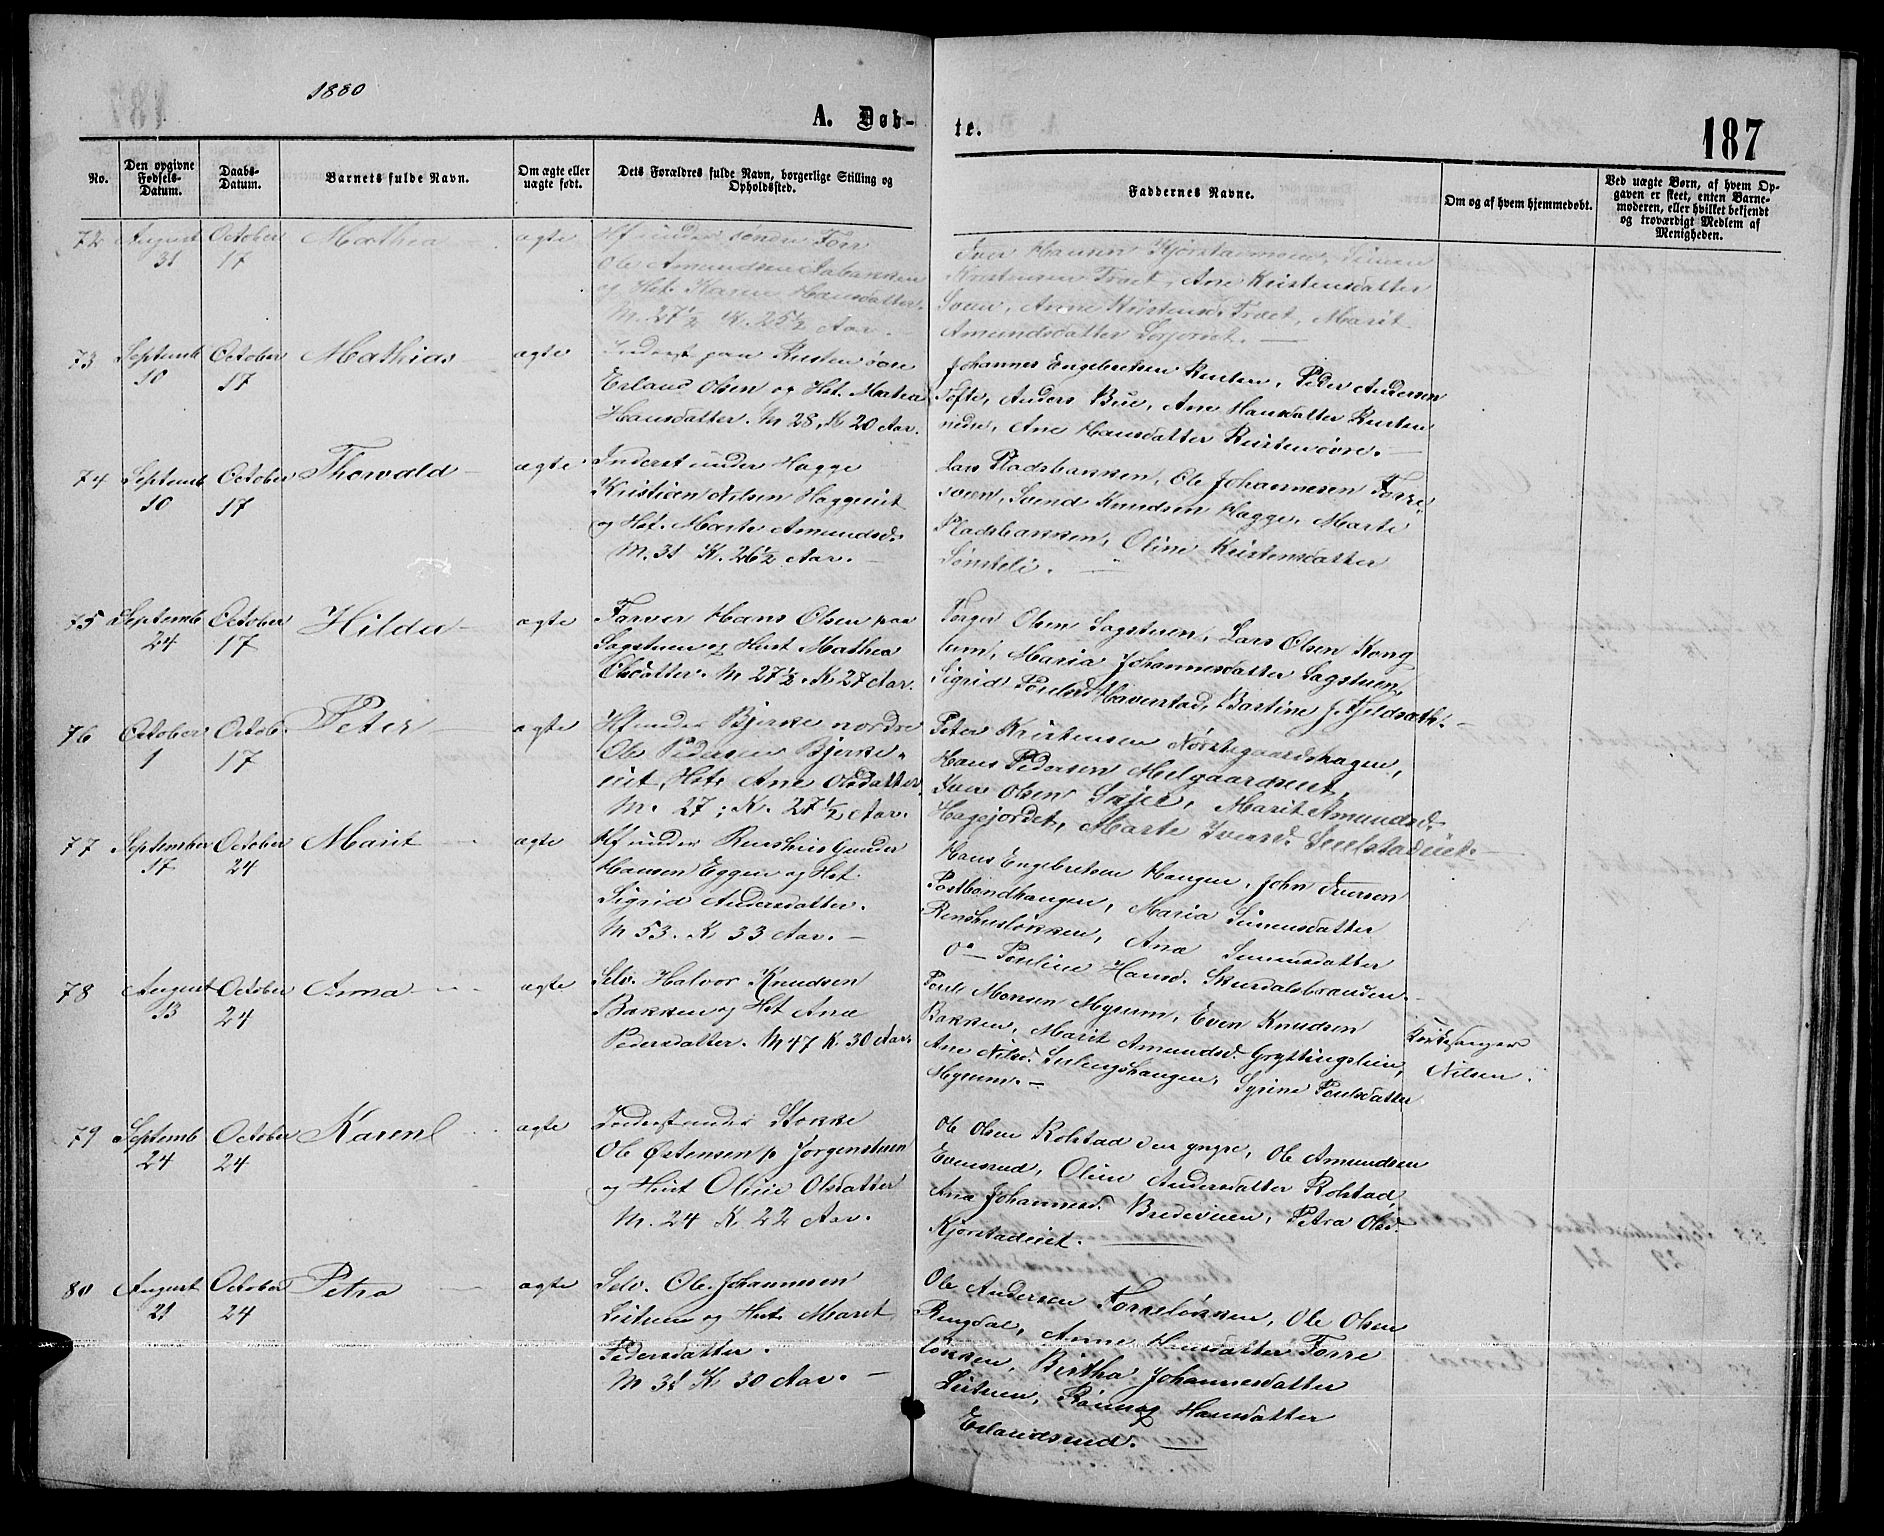 1880
A. Døb-
te.
187
No.
Den opgivne Fødsels-Datum.
Daabs-Datum.
Barnets fulde Navn.
Om ægte eller uægte født.
Dets Forældres fulde Navn, borgerlige Stilling og Opholdssted.
Faddernes Navne.
Om og af hvem hjemmedøbt.
Ved uægte Børn, af hvem Opgaven er skeet, enten Barnemoderen, eller hvilket bekjendt og troværdigt Medlem af Menigheden.
72 August 31 October 17 Mathea ægte
Hf under søndre Forr
Ole Amundsen Aabakken
og Hst. Karen Hansdatter.
M. 27½ K. 25½ Aar.
Iver Hansen Kjørstadmoen, Simen
Kristensen Troet, Ane Kristensdatter
Sveen, Anne Kristensd. Troet, Marit
Amundsdatter
73 Septemb 10 October 17 Mathias ægte
Inderst paa Rusten øvre
Erland Olsen og Hst. Mathea
Hansdatter. M 28, K 20 Aar.
Johannes Engebretsen Rusten, Peder Andersen
Tofte, Anders Bue, Ane Hansdatter Rusten
nedre, Ane Hansdatter Rusten øvre.
74 Septemb 10 October 17 Thorvald ægte
Inderst under Hagge
Kristian Nilsen Haggeeiet
og Hst. Marte Amundsd.
M. 31 K. 26½ Aar.
Lars Pladsbakken, Ole Johannesen Forre
sveen, Svend Knudsen Hagge, Marte
Pladsbakken, Oline Kristensdatter
Sønsteli.
75 Septemb 24 October 17 Hilda ægte
Farver Hans Olsen paa
Sagstuen og Hust Mathea
Olsdatter. M 27½. K. 27 Aar.
Torger Olsen Sagstuen, Lars Olsen Kong
lum, Maria Johannesdatter Sagstuen,
Sigrid Poulsd. Haverstad, Bastine J. Fjeldsæth.
76 October 1 Octob. 17 Peter ægte
Hf under Bjerke nordre
Ole Pedersen Bjerke-
eiet, Hst. Ane Olsdatter
M. 27; K. 27½ Aar.
Peter Kristensen Nørstegaardshagen,
Hans Pedersen Melgaardseiet,
Iver Olsen Marit Amundsd.
Hagejordet, Marte Iversd.
77 September 17 October 24 Marit ægte
Hf under Renshus Gunder
Hansen Eggen og Hst.
Sigrid Andersdatter.
M 53. K 33 Aar.
Hans Engebretsen Haugen, John Iversen
Postbondhaugen, Maria Simensdatter
Renshusløkken, Ane Simensdatter
Pauline Hansd. Skurdalsbranden.
78 August 13 October 24 Anna ægte
Selv. Halvor Knudsen
Bakken og Hst Ane
Pedersdatter. M 47 K. 30 Aar.
Poul Monsen Myrum, Even Knudsen
Bakken, Marit Amundsd. Gryttingslien,
Ane Nilsd. Syrine Poulsdatter
Myrum.
Kirkesanger
Nilsen.
79 Septemb 24 October 24 Karen ægte
Inderst under Stokke
Ole Østensen p Jørgenstuen
og Hust Oline Olsdatter
M. 24 K. 22 Aar.
Ole Olsen Kolstad den yngre, Ole Amundsen
Evensrud, Oline Andersdatter Kolstad,
Ane Johannesd. Bredeveien, Petra Olsd.
Kjørstadeiet.
80 August 21 October 24 Petra ægte
Selv. Ole Johannesen
Listuen og Hust. Marit
Pedersdatter.
M 31 K 30 Aar.
Ole Andersen Forreløkken, Ole Olsen
Ringdal, Anne Hansdatter Forre
løkken, Birthe Johannesdatter
Listuen, Rønnog Hansdatter
Erlandsrud.